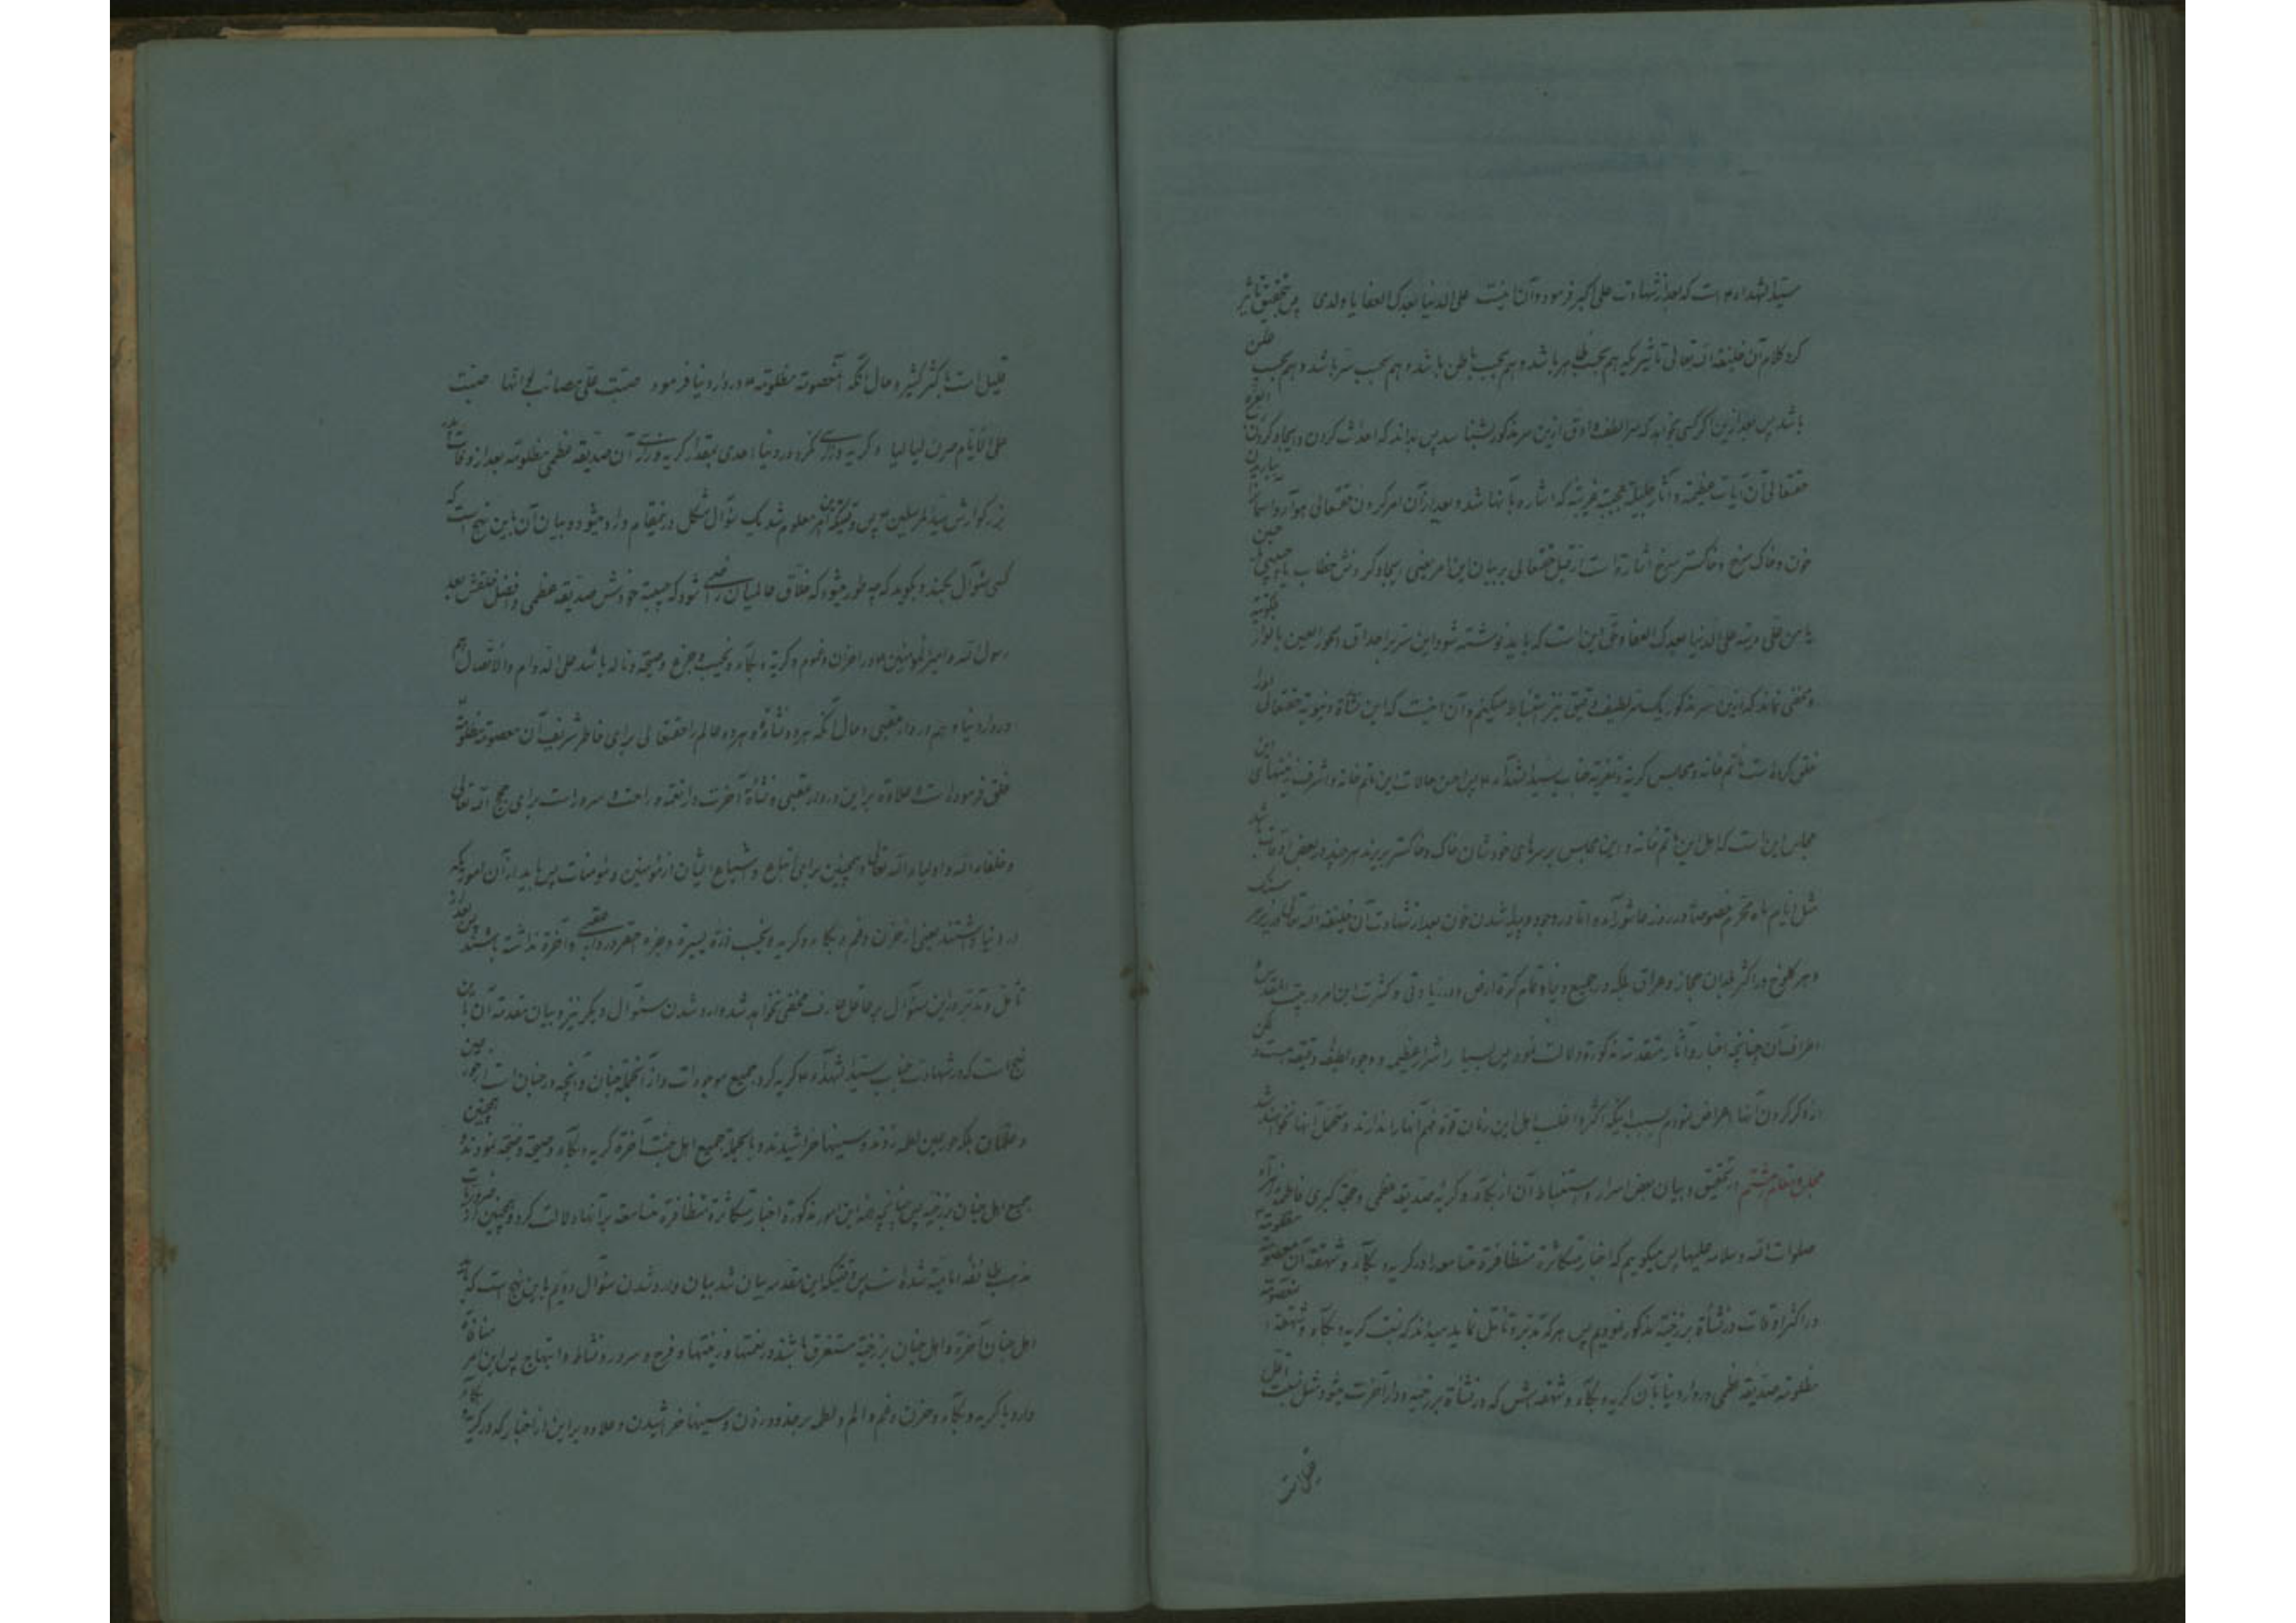 سید الشهداء است که بعد از شهادت علی اکبر فرمود و آن اینست علی الدنیا بعدک العفا یا ولدی پس تحقیق تاثیر
کرد کلام آن خلیفة الله تعالی تاثیریکه هم بحسب ظاهر باشد و هم بحسب باطن باشد و هم بحسب سر باشد و هم بحسب علن
باشد پس بعد ازین اگر کسی بخواهد که سر الطف و ادق ازین سر مذکور بشناسد پس بداند که احداث کردن و ایجاد کردن
حقتعالی آن آیات عظیمه و آثار جلیله عجیبه غریبه که اشاره بآنها شد و بعد از آن امر کردن حقتعالی هوا و آسمان
خون و خاک سرخ و خاکستر سرخ اشارتست از قبل حقتعالی بر بیان این امر یعنی ایجاد کردنش خطاب یا حبیبی یا حسین
یا من قلی و رثه علی الدنیا بعدک العفا و حق این است که باید نوشته شود این سر بر احداق الحور العین بالنور
و مخفی نماند که ازین سر مذکور یک سر لطیف دقیقی نیز استنباط میکنیم و آن اینست که این نشأة دنیویه حقتعالی او را
خلق کرده است ماتم خانه و مجالس گریه و تعزیه جناب سید الشهداء پس احسن حالات این ماتم خانه و اشرف زینتهای این
مجالس این است که اهل این ماتم خانه و این مجالس بر سرهای خودشان خاک و خاکستر بریزند هر چند در بعض اوقات باشد
مثل ایام ماه محرم خصوصا در روز عاشورا و اما در وجود و پیدا شدن خون بعد از شهادت آن خلیفة الله تعالی در زیر هر سنگ
و هر کلوخ در اکثر بلدان حجاز و عراق بلکه در جمیع دنیا و تمام کره ارض و در زیادتی و کثرت این امر در بیت المقدس و
اطراف آن چنانچه اخبار و آثار متقدمه مذکوره دلالت نمود پس بسیار اسرار عظیمه و وجوه لطیفه دقیقه هست و لکن
از ذکر کردن آنها اعراض نمودم بسبب اینکه اکثر و اغلب اهل این زمان قوة فهم آنها را ندارند و متحمل آنها نخواهند شد
مجلس و مقام هشتم در تحقیق و بیان بعض اسرار و استنباط آن از بکاء و گریه صدیقه عظمی و حجة کبری فاطمه زهراء
صلوات الله و سلامه علیها پس میگویم که اخبار متکاثره متظافره متسامعه را در گریه و بکاء و شهقه آن معصومه مظلومه
در اکثر اوقات در نشأة برزخیه مذکور نمودیم پس هر که تدبر و تأمل نماید میداند که نسبت گریه و بکاء و شهقه معصومه
مظلومه صدیقه عظمی در دار دنیا بآن گریه و بکاء و شهقه اش که در نشأة برزخیه و دار آخرت میشود مثل نسبت اقل
قلیل است باکثر کثیر و حال آنکه آن معصومه مظلومه در دار دنیا فرمود صبت علی مصائب لو انها صبت
علی الایام صرن لیالیا و گریه و زاری نکرد در دنیا احدی بمقدار گریه و زاری آن صدیقه عظمی مظلومه بعد از وفات پدر
بزرگوارش سید المرسلین پس وقتیکه این امر معلوم شد یک سؤال مشکل در نمقام وارد میشود و بیان آن باین نهج است که
کسی سؤال بکند و بگوید که چه طور میشود که خلاق عالمیان راضی شود که حبیبه خودش صدیقه عظمی و افضل خلقش بعد
رسول الله و امیر المؤمنین در احزان و غموم و گریه و بکاء و نحیب و جزع و صیحه و ناله باشد علی الدوام و الاتصال هم
در دار دنیا و هم در دار عقبی و حال آنکه هر دو نشأة و هر دو عالم را حقتعالی برای خاطر شریف آن معصومه مظلومه
خلق فرموده است و علاوه بر این دار عقبی و نشأة آخرت دار نعمة و راحت و سرور است برای حجج الله تعالی
و خلفاء الله و اولیاء الله تعالی و همچنین برای اتباع و اشیاع ایشان از مؤمنین و مؤمنات پس باید از آن امور یکه
در دنیا داشتند یعنی از حزن و غم و بکاء و گریه و نحیب ذرة یسیرة و جزء احقر در دار عقبی و آخرة نداشته باشند پس بعد از
تأمل و تدبر در این سؤال بر عاقل عارف مخفی نخواهد شد وارد شدن سؤال دیگر نیز و بیان مقدمه آن باین
نهج است که در شهادت جناب سید الشهداء گریه کرد جمیع موجودات و از آنجمله جنان و آنچه در جنان است از حور عین
و غلمان بلکه حور عین لطمه زدند و سینها خراشیدند و بالجمله جمیع اهل جنت آخرة گریه و بکاء و صیحه و ضجه نمودند و همچنین
جمیع اهل جنان برزخیه پس چنانچه بر این امور مذکوره اخبار متکاثره متظافره متسامعه بر آنها دلالت کرد و همچنین از ضروریات
مذهب طائفه امامیه شده است پس وقتیکه این مقدمه بیان شد بیان وارد شدن سؤال دویم باین نهج است که باید
اهل جنان آخرة و اهل جنان برزخیه مستغرق باشند در نعمتها و زینتها و فرح و سرور و نشاط و ابتهاج پس این امر منافاة
دارد با گریه و بکاء و حزن و غم و الم و لطمه بر خدود زدن و سینها خراشیدن و علاوه بر این از اخبار که در گریه و بکاء